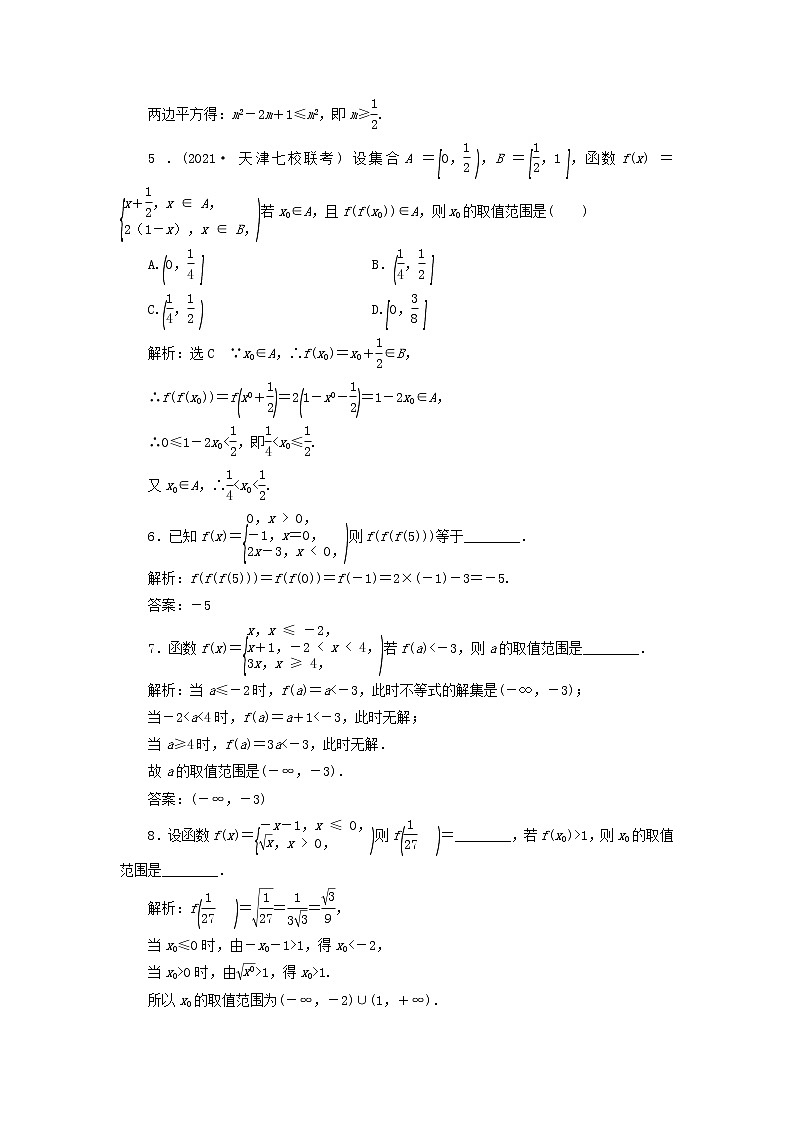 两边平方得：m²－2m＋1≤m²，即 m≥1/2.
5．(2021· 天津七校联考) 设集合 A＝[0，1/2)，B＝[1/2，1]，函数 f(x)＝
{x＋1/2，x ∈ A，
2（1－x），x ∈ B，若 x₀∈A，且 f(f(x₀))∈A，则 x₀的取值范围是(　　)
A.(0，1/4]　　B.(1/4，1/2]
C.(1/4，1/2)　　D.[0，3/8]
解析：选 C　∵x₀∈A，∴f(x₀)＝x₀＋1/2∈B，
∴f(f(x₀))＝f(x⁰＋1/2)＝2(1－x⁰－1/2)＝1－2x₀∈A，
∴0≤1－2x₀<1/2，即1/4<x₀≤1/2.
又 x₀∈A，∴1/4<x₀<1/2.
6．已知 f(x)＝{0，x > 0，
－1，x＝0，
2x－3，x < 0，则 f(f(f(5)))等于________．
解析：f(f(f(5)))＝f(f(0))＝f(－1)＝2×(－1)－3＝－5.
答案：－5
7．函数 f(x)＝{x，x ≤ －2，
x＋1，－2 < x < 4，
3x，x ≥ 4，若 f(a)<－3，则 a的取值范围是________．
解析：当 a≤－2时，f(a)＝a<－3，此时不等式的解集是(－∞，－3)；
当－2<a<4时，f(a)＝a＋1<－3，此时无解；
当 a≥4时，f(a)＝3a<－3，此时无解．
故 a的取值范围是(－∞，－3)．
答案：(－∞，－3)
8．设函数 f(x)＝{－x－1，x ≤ 0，
√x，x > 0，则 f(1/27)＝________，若 f(x₀)>1，则 x₀的取值
范围是________．
解析：f(1/27)＝√(1/27)＝1/(3√3)＝√3/9，
当 x₀≤0时，由－x₀－1>1，得 x₀<－2，
当 x₀>0时，由√x⁰>1，得 x₀>1.
所以 x₀的取值范围为(－∞，－2)∪(1，＋∞)．